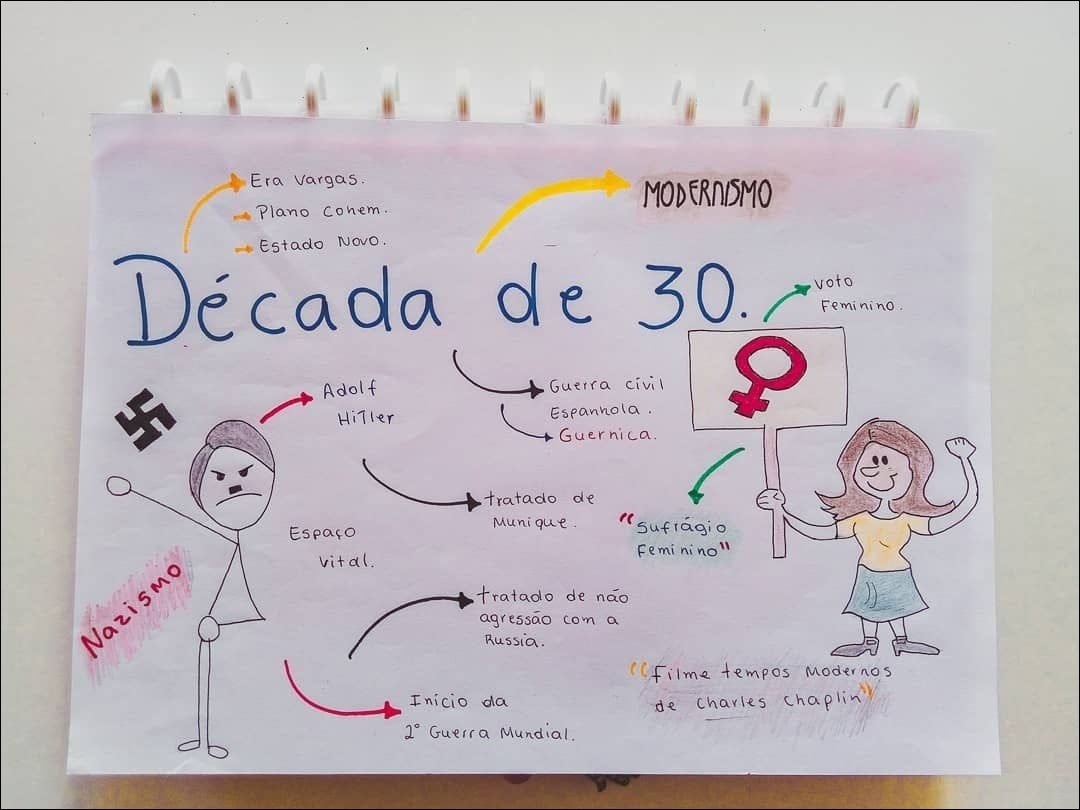 Era Vargas.
Plano Cohem.
Estado Novo.
MODERNISMO
Década de 30.
voto
Feminino.
Adolf
HiTler
Guerra cívil
Espanhola.
Guernica.
tratado de
Munique.
"Sufrágio
Feminino"
Espaço
vital.
Nazismo
tratado de não
agressão com a
Russia.
Início da
2° Guerra Mundial.
"Filme tempos Modernos
de Charles Chaplin"